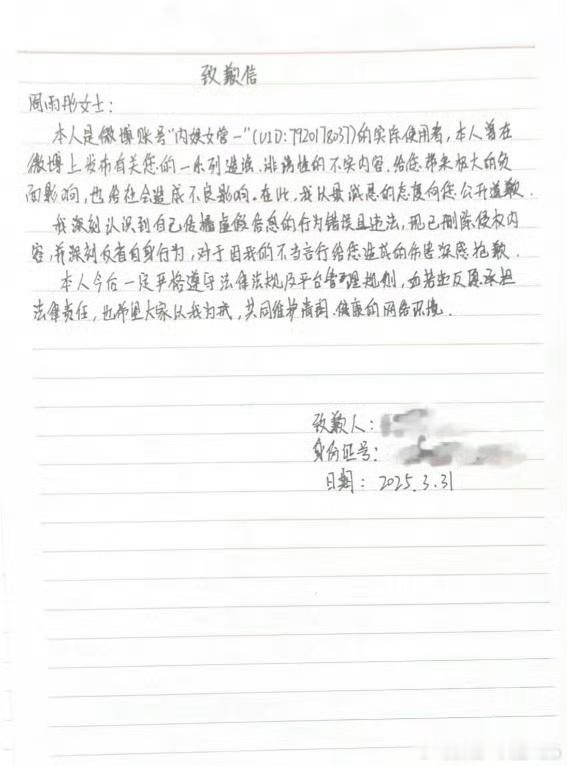 致歉信
周雨彤女士：
本人是微博账号“内娱女学一”(UID:7920178037)的实际使用者，本人曾在
微博上发布有关您的一系列造谣、诽谤性的不实内容，给您带来极大的负
面影响，也给社会造成不良影响。在此，我以最诚恳的态度向您公开道歉．
我深刻认识到自己传播虚假信息的行为错误且违法，现已删除侵权内
容，并深刻反省自身行为，对于因我的不当言行给您造成的伤害深感抱歉．
本人今后一定严格遵守法律法规及平台管理规则，如若违反愿承担
法律责任，也希望大家以我为戒，共同维护清朗、健康的网络环境．
致歉人：
身份证号：
日期：2025.3.31